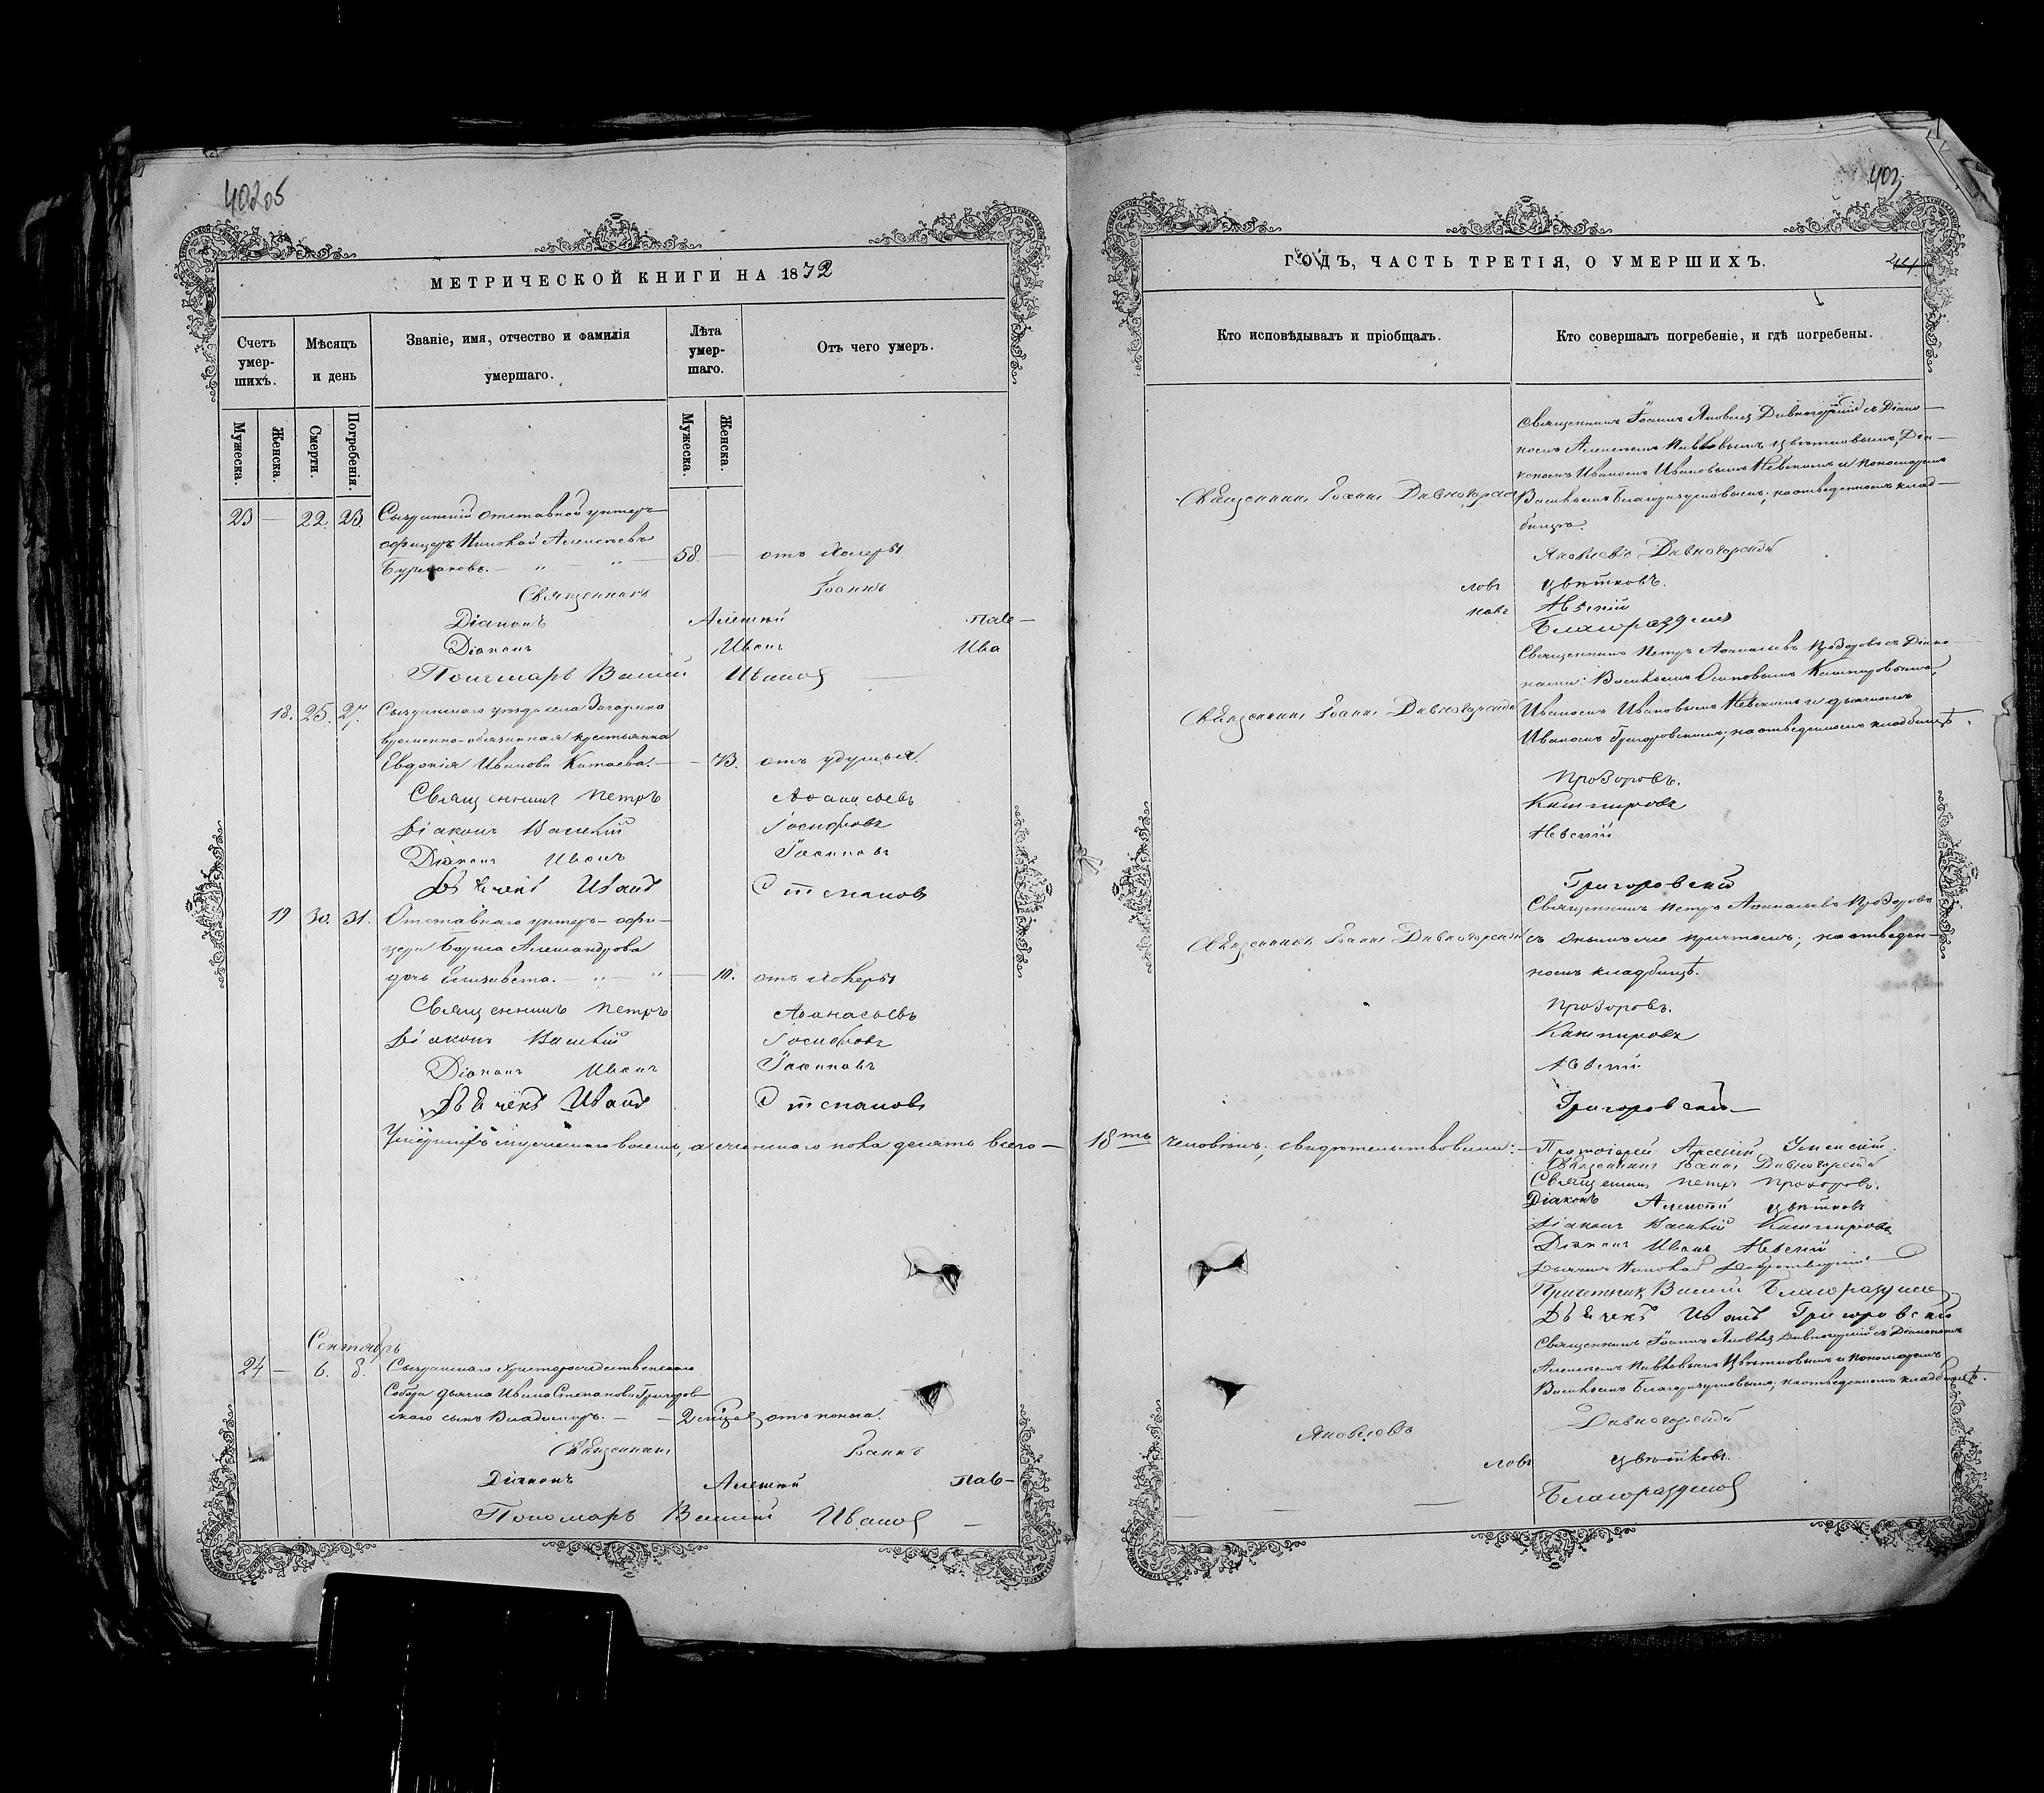 40205
МЕТРИЧЕСКОЙ КНИГИ НА 1872
Счетъ умер-шихъ.
Мѣсяцъ и день
Званіе, имя, отчество и фамилія умершаго.
Лѣта умер-шаго.
Отъ чего умеръ.
Мужеска.
Женска.
Смерти.
Погребенія.
Мужеска.
Женска.
23 — 22. 23. Сызранскій отставной унтеръ-
офицеръ Николай Алексѣевъ
Бурлаковъ. — „ — „ — 58. — отъ холеры
Священникъ Іоаннъ
Діаконъ Алексѣй Пав-
Діаконъ Иванъ Ива
Пономарь Василій Ивановъ
18. 25. 27. Сызранскаго уѣзда села
временно-обязанная крестьянка
Евдокія Иванова Китаева. — — 73. отъ удушья.
Священникъ Петръ Аѳанасьевъ
Діаконъ Василій Іосифовъ
Діаконъ Иванъ Іоанновъ
Дьячекъ Иванъ Степановъ
19 30. 31. Отставнаго унтеръ-офи-
цера Бориса Александрова
дочь Елизавета. — „ — „ — 10. отъ холеры
Священникъ Петръ Аѳанасьевъ
Діаконъ Василій Іосифовъ
Діаконъ Иванъ Іоанновъ
Дьячекъ Иванъ Степановъ
Умершихъ мужескаго восемь, а женскаго пола десять всего —
Сентябрь
24 — 6. 8. Сызранскаго Христорождественскаго
Собора дьячка Ивана Степанова Григоров-
скаго сынъ Владимиръ. — — 2 отъ поноса.
Священникъ Іоаннъ
Діаконъ Алексѣй Пав-
Пономарь Василій Ивановъ —
403
ГОДЪ, ЧАСТЬ ТРЕТІЯ, О УМЕРШИХЪ.
Кто исповѣдывалъ и пріобщалъ.
Кто совершалъ погребеніе, и гдѣ погребены.
Священникъ Іоаннъ Дивногорскій
Священникъ Іоаннъ Яковлевъ Дивногорскій съ Діако-
номъ Алексѣемъ Павловымъ Цвѣтковымъ, Діа-
кономъ Иваномъ Ивановымъ Невскимъ и пономаремъ
Васильемъ Благоразумовымъ; на отведенномъ клад-
бищѣ.
Яковлевъ Дивногорскій
ловъ Цвѣтковъ.
новъ Невскій
Благоразумовъ
Священникъ Іоаннъ Дивногорскій
Священникъ Петръ Аѳанасьевъ Прозоровъ съ Діако-
нами: Васильемъ Осиповымъ Кашпировымъ,
Иваномъ Ивановымъ Невскимъ и дьячкомъ
Иваномъ Григоровскимъ; на отведенномъ кладбищѣ.
Прозоровъ.
Кашпировъ
Невскій
Григоровскій
Священникъ Іоаннъ Дивногорскій
Священникъ Петръ Аѳанасьевъ Прозоровъ
съ онымъ же причтомъ; на отведен-
номъ кладбищѣ.
Прозоровъ.
Кашпировъ
Невскій
Григоровскій
18ть человѣкъ; свидѣтельствовали: — Протоіерей Арсеній Успенскій.
Священникъ Іоаннъ Дивногорскій
Священникъ Петръ Прозоровъ.
Діаконъ Алексѣй Цвѣтковъ
Діаконъ Василій Кашпировъ
Діаконъ Иванъ Невскій
Дьячекъ Николай
Причетникъ Василій Благоразумовъ
Дьячекъ Иванъ Григоровскій
Священникъ Іоаннъ Яковлев Дивногорскій съ Діакономъ
Алексѣемъ Павловымъ Цвѣтковымъ и пономаремъ
Васильемъ Благоразумовымъ; на отведенномъ кладбищѣ.
Яковлевъ Дивногорскій
ловъ Цвѣтковъ.
— — Благоразумовъ